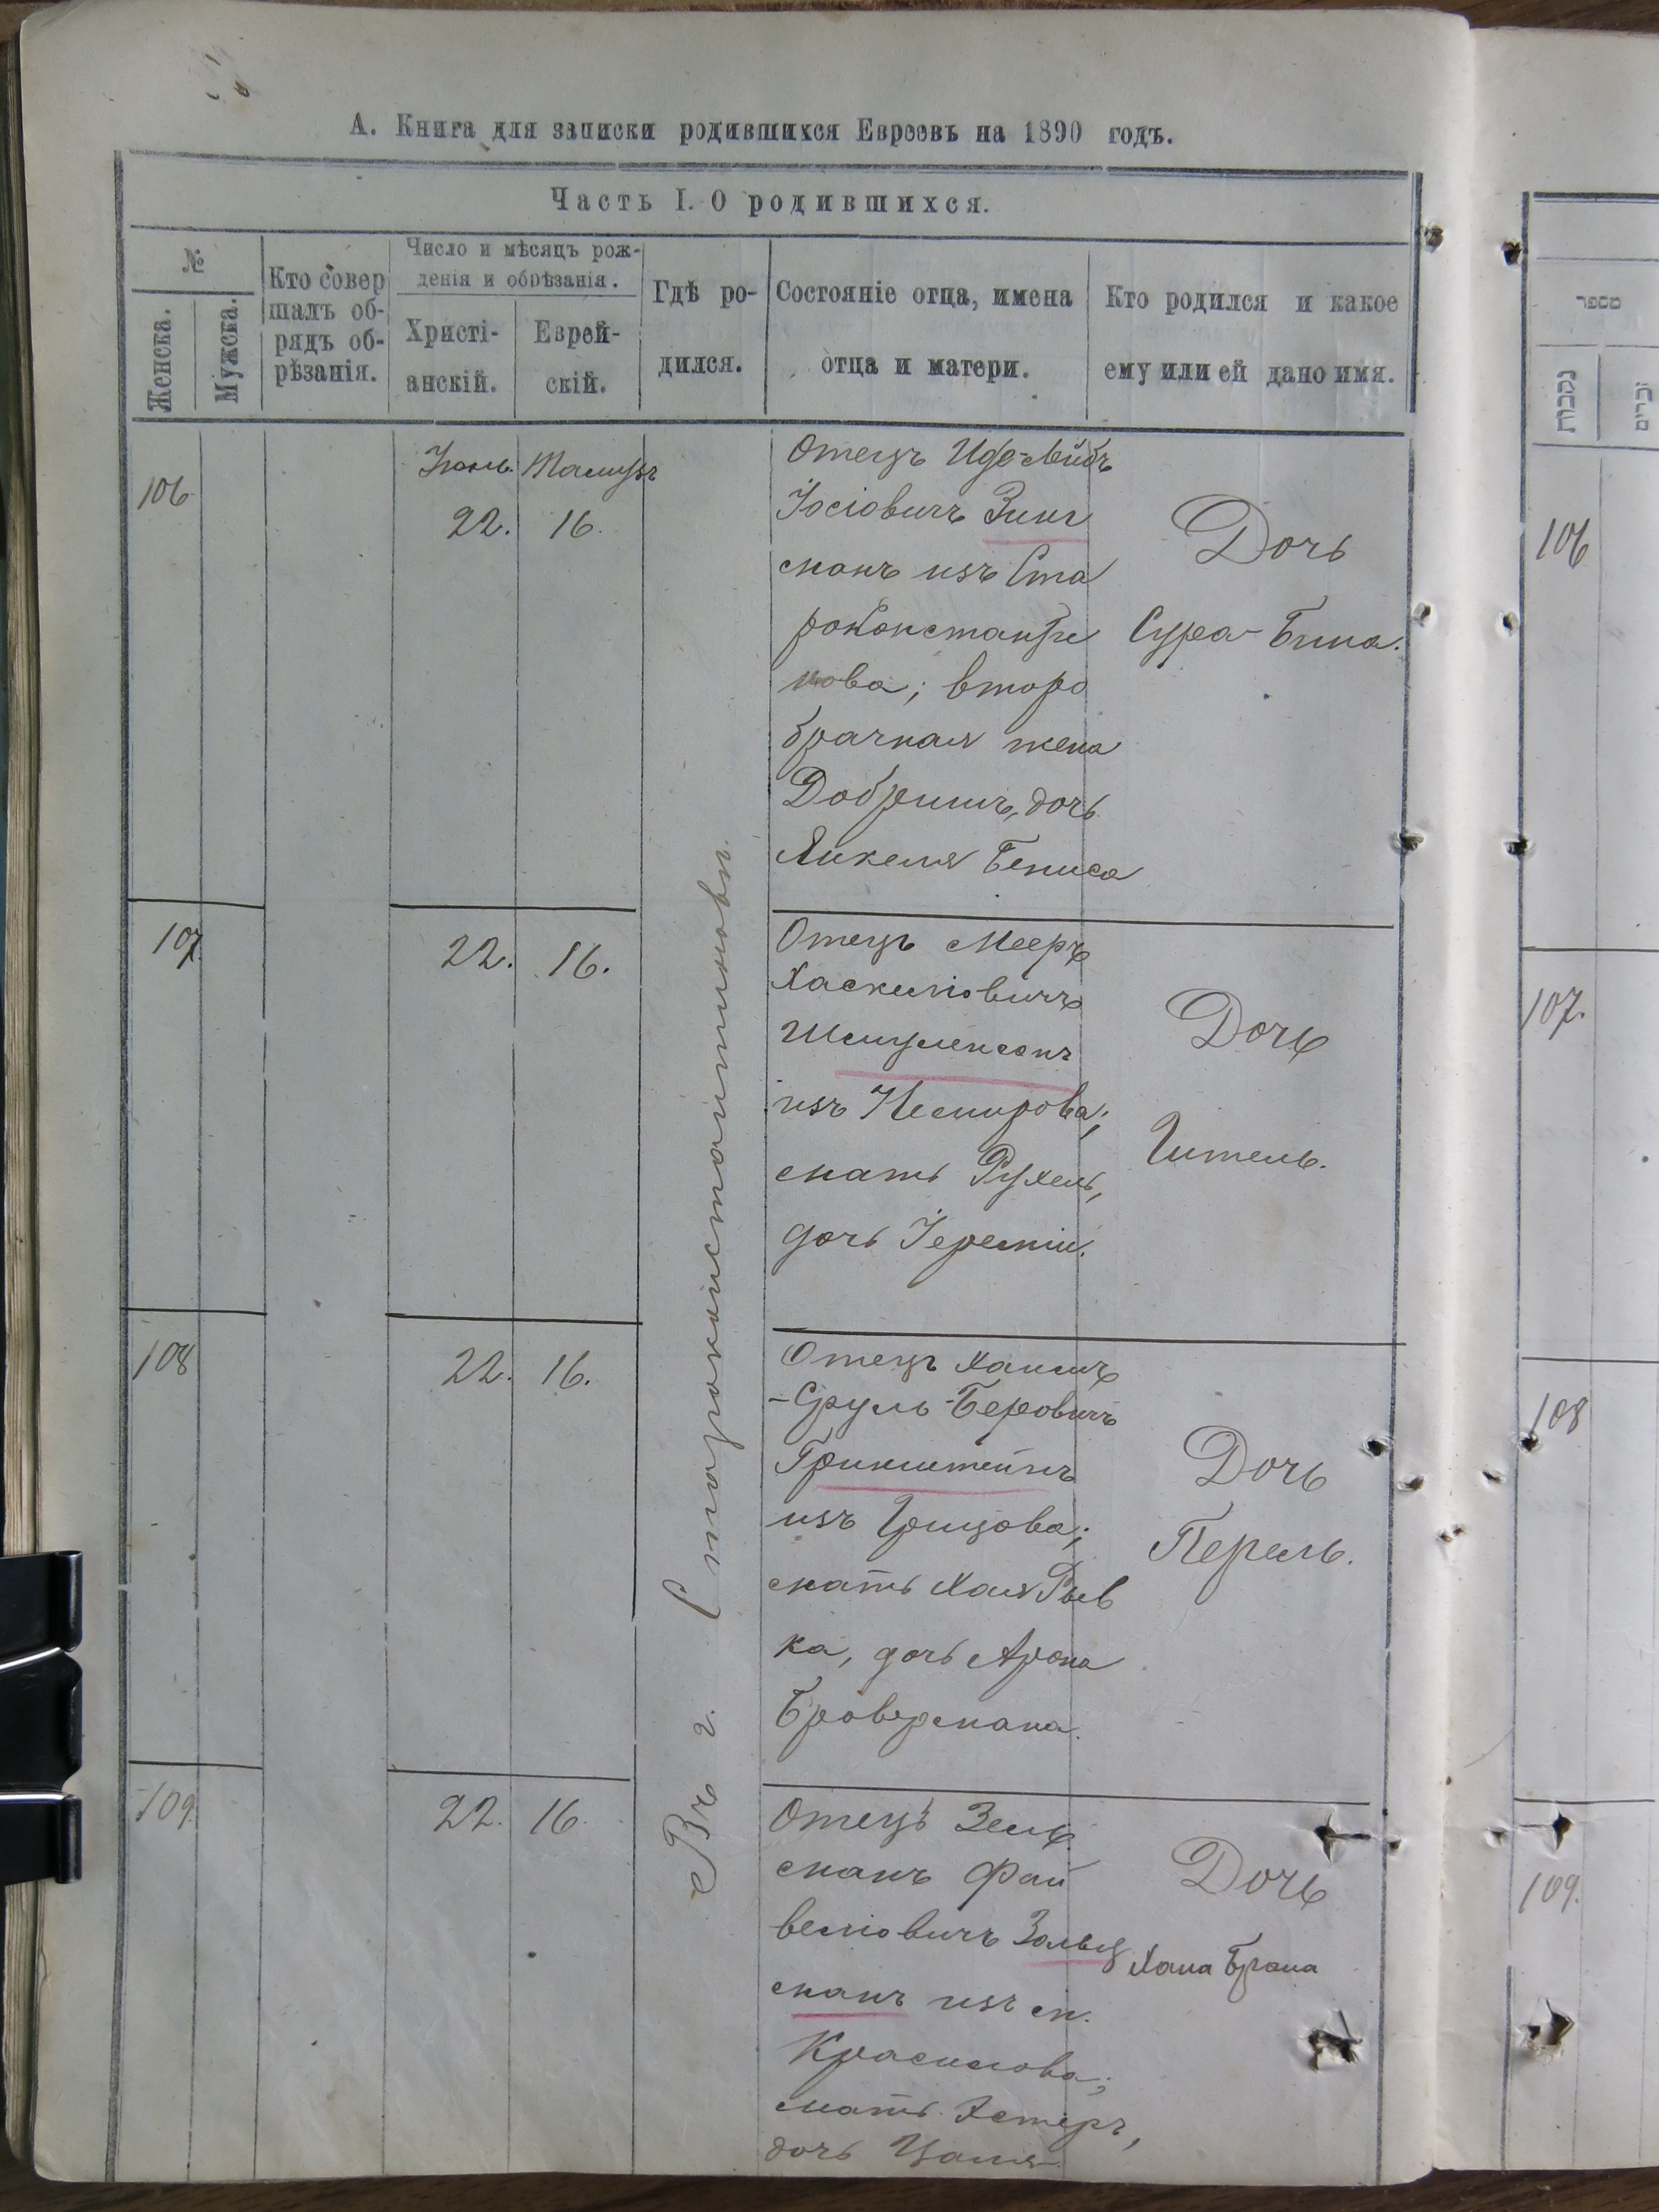 А. Книга для записки родившихся Евреевъ на 1890 годъ.
Часть I. О родившихся.
№
Женска.
Мужска.
Кто совер
шалъ об-
рядъ об-
рѣзанія.
Число и мѣсяцъ рож-
денія и обрѣзанія.
Христі-
анскій.
Еврей-
скій.
Гдѣ ро-
дился.
Состояніе отца, имена
отца и матери.
Кто родился и какое
ему или ей дано имя.
מספר
נקבות
זכרים
Въ г. Староконстантиновѣ.
106
Іюнь. Тамузъ
22. 16.
Отецъ Идо-Лейбъ
Іосіовичъ Зинг
манъ изъ Ста
роконстанти
нова; второ
брачная жена
Добришъ, дочь
Янкеля Бениса
Дочь
Сура-Бина.
106
107.
22. 16.
Отецъ Мееръ
Хаскеліовичъ
Шмуленсонъ
изъ Немирова;
мать Рухель,
дочь Іереміи.
Дочь
Гитель.
107.
108
22. 16.
Отецъ Хаимъ
-Сруль-Беровичъ
Гринштейнъ
изъ Грицова;
мать Хая Рыв
ка, дочь Арона
Бровермана.
Дочь
Перель.
108
109.
22. 16.
Отецъ Зель
манъ Фай
веліовичъ Зальц
манъ изъ м.
Красилова;
мать Эстеръ,
дочь
Дочь
Хана Брана
109.